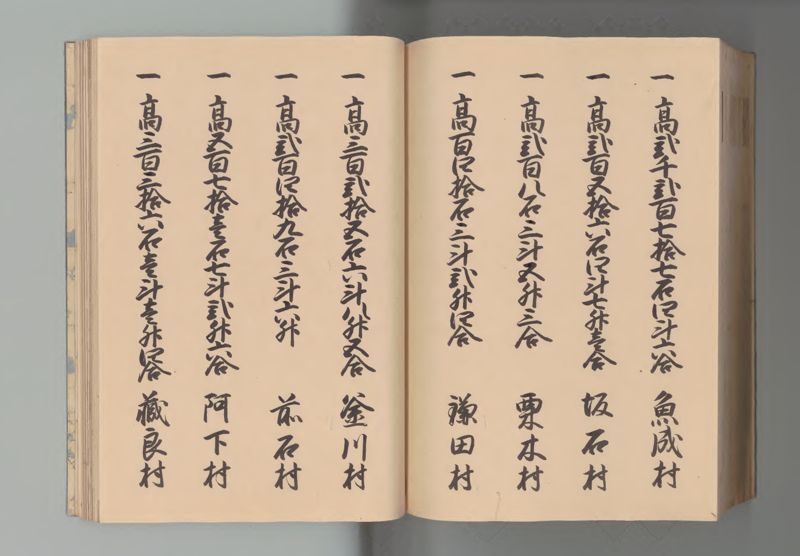 一 高弐千弐百七拾七石四斗六合 魚成村
一 高弐百五拾六石四斗七升壱合 坂石村
一 高弐百八石三斗五升三合 栗木村
一 高百四拾石三斗弐升四合 鎌田村
一 高三百弐拾五石六斗八升五合 釜川村
一 高弐百四拾九石三斗六升 前石村
一 高五百七拾壱石七斗弐升六合 阿下村
一 高三百三拾六石壱斗壱升四合 蔵良村